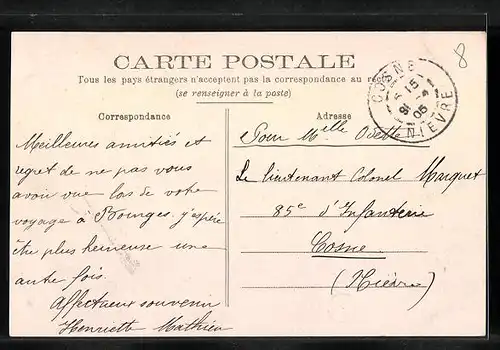 CARTE POSTALE
Tous les pays étrangers n'acceptent pas la correspondance au recto
(se renseigner à la poste)
8
COSNE
NIÈVRE
Correspondance
Adresse
Meilleures amitiés et
regret de ne pas vous
avoir vue lors de votre
voyage à Bourges, j'espère
être plus heureuse une
autre fois.
Affectueux souvenir
Henriette Mathieu
Pour Melle Odette
Le lieutenant Colonel Marquet
85e d'Infanterie
Cosne
(Nièvre)